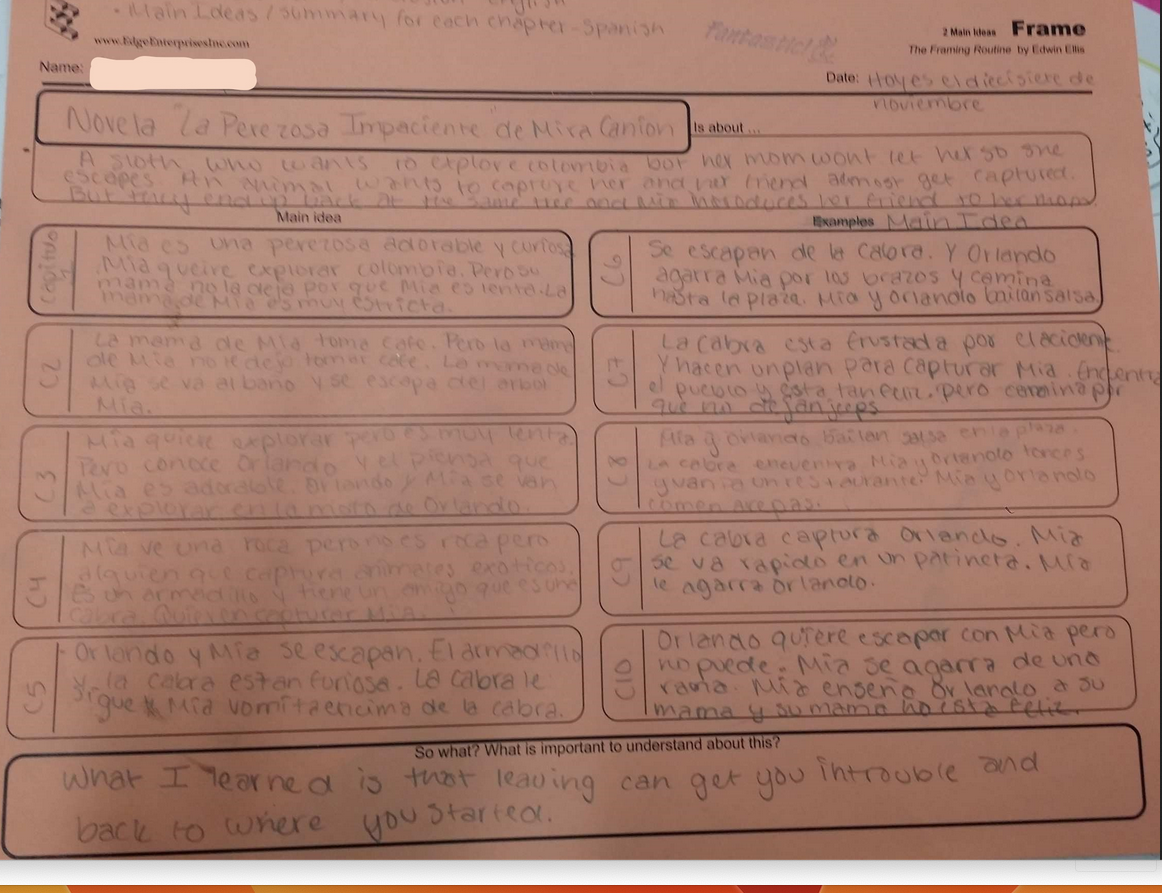 • Main Ideas / summary for each chapter - Spanish
Fantastic!
www.EdgeEnterprisesInc.com
2 Main Ideas Frame
The Framing Routine by Edwin Ellis
Name:
Date: Hoy es el diecisiete de
noviembre
Novela "La Perezosa Impaciente" de Mira Canion
Is about ...
A sloth who wants to explore colombia but her mom wont let her so she
escapes. An animal wants to capture her and her friend almost get captured.
But they end up back at the same tree and Mia introduces her friend to her mom
Main idea
Capitulo 1
Mia es una perezosa adorable y curiosa
Mia queire explorar colombia. Pero su
mama no la deja por que Mia es lenta. La
mama de Mia es muy estricta.
C2
La mama de Mia toma cafe. Pero la mama
de Mia no le deja tomar cafe. La mama de
Mia se va al baño y se escapa del arbol
Mia.
C3
Mia quiere explorar pero es muy lenta.
Pero conoce Orlando y el piensa que
Mia es adorable. Orlando y Mia se van
a explorar en la moto de Orlando.
C4
Mia ve una roca pero no es roca pero
alguien que captura animales exoticos.
Es un armadillo y tiene un amigo que es una
cabra. Quieren capturar Mia.
C5
Orlando y Mia se escapan. El armadillo
y la cabra estan furiosa. La cabra le
sigue Mia vomita encima de la cabra.
Examples Main Idea
C6
Se escapan de la cabra. Y Orlando
agarra Mia por los brazos y camina
hasta la plaza. Mia y Orlando bailan salsa.
C7
La cabra esta frustada por el acident
Y hacen un plan para capturar Mia. Encentra
el pueblo y esta tan feliz. pero camina por
que no dejan jeeps
C8
Mia y Orlando bailan salsa en la plaza.
La cabra encuentra Mia y Orlando tonces
y van a un restaurante. Mia y Orlando
comen arepas.
C9
La cabra captura Orlando. Mia
se va rapido en un patineta. Mia
le agarra Orlando.
C10
Orlando quiere escapar con Mia pero
no puede. Mia se agarra de una
rama. Mia enseña Orlando a su
mama y su mama no esta feliz.
So what? What is important to understand about this?
What I learned is that leaving can get you in trouble and
back to where you started.